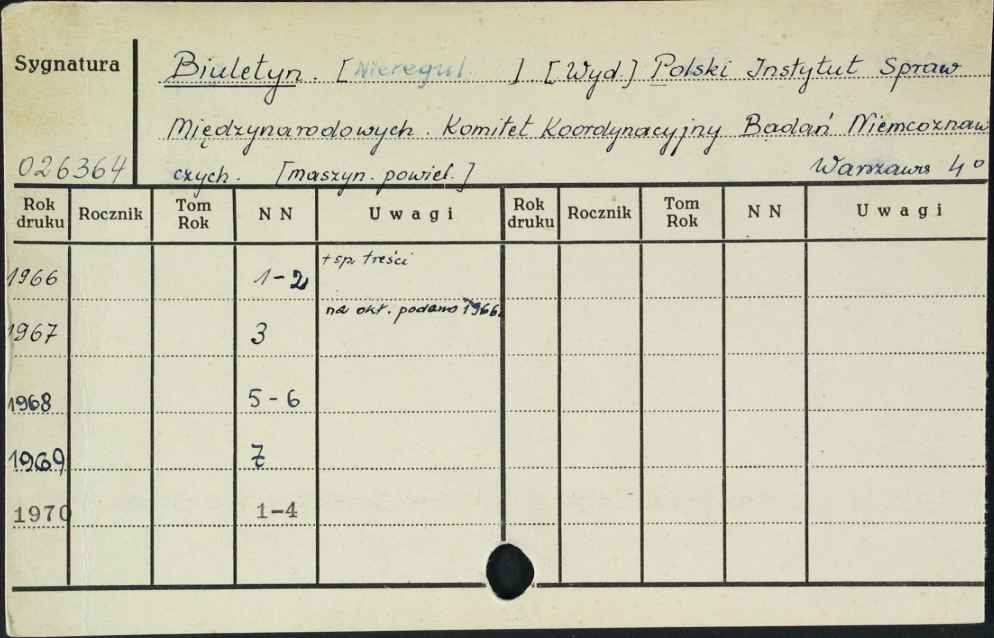 Sygnatura
Biuletyn. [Nieregul. ] [Wyd.] Polski Instytut Spraw
Międzynarodowych. Komitet Koordynacyjny Badań Niemcoznaw
026364 czych. [maszyn. powiel.] Warszawa 4°
Rok druku Rocznik Tom Rok NN Uwagi Rok druku Rocznik Tom Rok NN Uwagi
1966 1-2 + sp. treści
1967 3 na okł. podano 1966.
1968 5-6
1969 7
1970 1-4